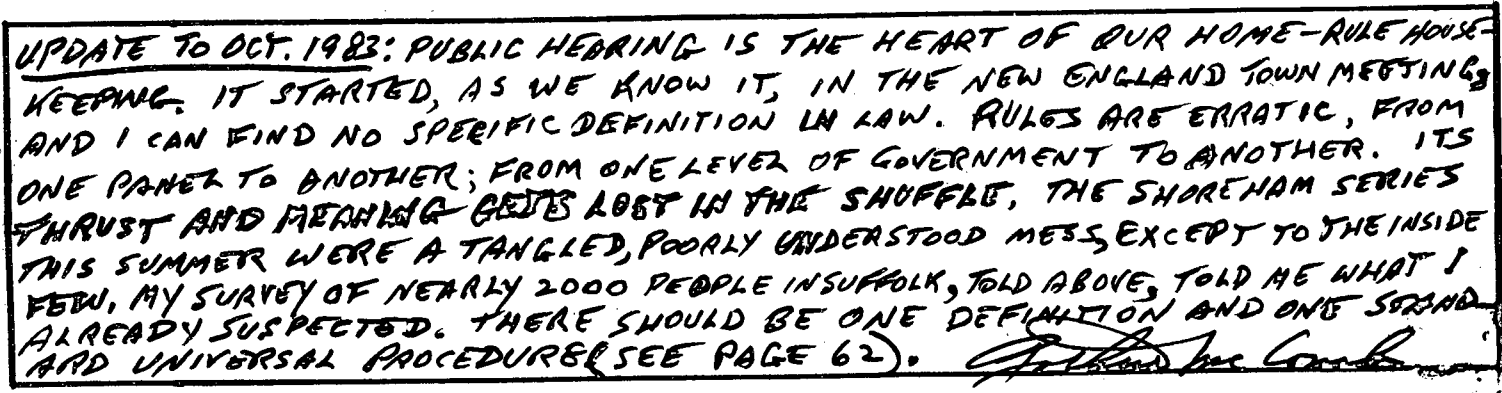 UPDATE TO OCT. 1983: PUBLIC HEARING IS THE HEART OF OUR HOME-RULE HOUSE-
KEEPING. IT STARTED, AS WE KNOW IT, IN THE NEW ENGLAND TOWN MEETING,
AND I CAN FIND NO SPECIFIC DEFINITION IN LAW. RULES ARE ERRATIC, FROM
ONE PANEL TO ANOTHER; FROM ONE LEVEL OF GOVERNMENT TO ANOTHER. ITS
THRUST AND MEANING GETS LOST IN THE SHUFFLE. THE SHOREHAM SERIES
THIS SUMMER WERE A TANGLED, POORLY UNDERSTOOD MESS, EXCEPT TO THE INSIDE
FEW. MY SURVEY OF NEARLY 2000 PEOPLE IN SUFFOLK, TOLD ABOVE, TOLD ME WHAT I
ALREADY SUSPECTED. THERE SHOULD BE ONE DEFINITION AND ONE STAND-
ARD UNIVERSAL PROCEDURE (SEE PAGE 62).